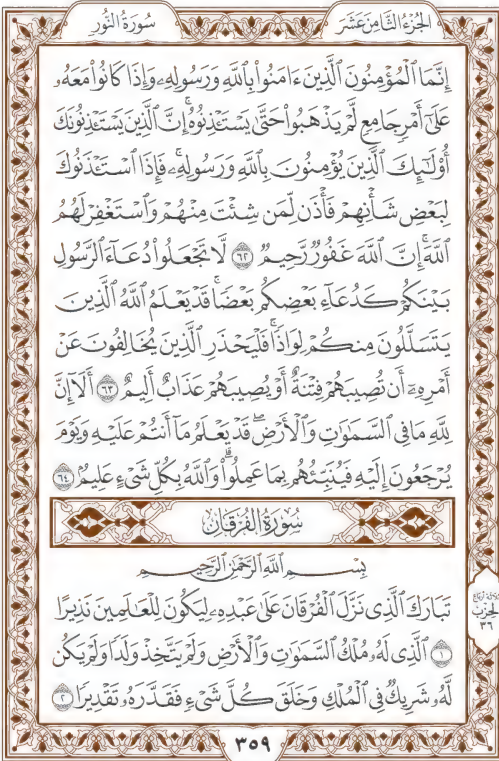 الجزء الثامن عشر
سورة النور
إِنَّمَا ٱلْمُؤْمِنُونَ ٱلَّذِينَ ءَامَنُوا۟ بِٱللَّهِ وَرَسُولِهِۦ وَإِذَا كَانُوا۟ مَعَهُۥ
عَلَىٰٓ أَمْرٍ جَامِعٍ لَّمْ يَذْهَبُوا۟ حَتَّىٰ يَسْتَـْٔذِنُوهُ ۚ إِنَّ ٱلَّذِينَ يَسْتَـْٔذِنُونَكَ
أُو۟لَـٰٓئِكَ ٱلَّذِينَ يُؤْمِنُونَ بِٱللَّهِ وَرَسُولِهِۦ ۚ فَإِذَا ٱسْتَـْٔذَنُوكَ
لِبَعْضِ شَأْنِهِمْ فَأْذَن لِّمَن شِئْتَ مِنْهُمْ وَٱسْتَغْفِرْ لَهُمُ
ٱللَّهَ ۚ إِنَّ ٱللَّهَ غَفُورٌ رَّحِيمٌ ٦٢ لَّا تَجْعَلُوا۟ دُعَآءَ ٱلرَّسُولِ
بَيْنَكُمْ كَدُعَآءِ بَعْضِكُم بَعْضًا ۚ قَدْ يَعْلَمُ ٱللَّهُ ٱلَّذِينَ
يَتَسَلَّلُونَ مِنكُمْ لِوَاذًا ۚ فَلْيَحْذَرِ ٱلَّذِينَ يُخَالِفُونَ عَنْ
أَمْرِهِۦٓ أَن تُصِيبَهُمْ فِتْنَةٌ أَوْ يُصِيبَهُمْ عَذَابٌ أَلِيمٌ ٦٣ أَلَآ إِنَّ
لِلَّهِ مَا فِى ٱلسَّمَـٰوَٰتِ وَٱلْأَرْضِ ۖ قَدْ يَعْلَمُ مَآ أَنتُمْ عَلَيْهِ وَيَوْمَ
يُرْجَعُونَ إِلَيْهِ فَيُنَبِّئُهُم بِمَا عَمِلُوا۟ ۗ وَٱللَّهُ بِكُلِّ شَىْءٍ عَلِيمٌۢ ٦٤
سورة الفرقان
بِسْمِ ٱللَّهِ ٱلرَّحْمَـٰنِ ٱلرَّحِيمِ
تَبَارَكَ ٱلَّذِى نَزَّلَ ٱلْفُرْقَانَ عَلَىٰ عَبْدِهِۦ لِيَكُونَ لِلْعَـٰلَمِينَ نَذِيرًا
١ ٱلَّذِى لَهُۥ مُلْكُ ٱلسَّمَـٰوَٰتِ وَٱلْأَرْضِ وَلَمْ يَتَّخِذْ وَلَدًا وَلَمْ يَكُن
لَّهُۥ شَرِيكٌ فِى ٱلْمُلْكِ وَخَلَقَ كُلَّ شَىْءٍ فَقَدَّرَهُۥ تَقْدِيرًا ٢
ثلاثة أرباع
الحزب
٣٦
٣٥٩